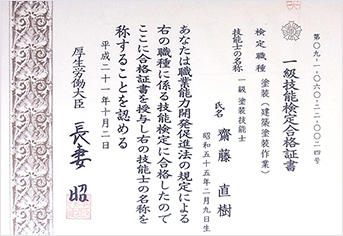 第〇九-1-〇六〇-二二-〇〇二四号
一級技能検定合格証書
検定職種 塗装(建築塗装作業)
技能士の名称 一級塗装技能士
氏名 齋藤直樹
昭和五十五年二月九日生
あなたは職業能力開発促進法の規定による
右の職種に係る技能検定に合格したので
ここに合格証書を授与し右の技能士の名称を
称することを認める
平成二十一年十月二日
厚生労働大臣 長妻昭